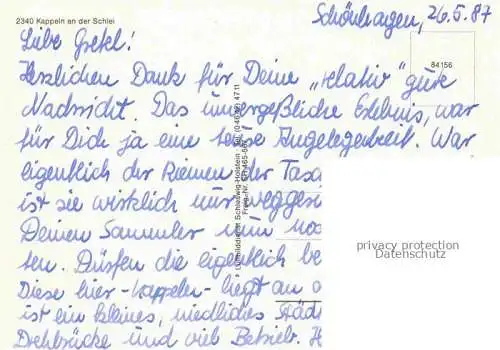 2340 Kappeln an der Schlei
Schönhagen, 26.5.87
84156
Liebe Gretel!
Herzlichen Dank für Deine „relativ" gute
Nachricht. Das unvergeßliche Erlebnis, war
für Dich ja eine teure Angelegenheit. War
eigentlich der Riemen der Tasc
ist sie wirklich nur weggeso
Deinen Sammler nun noc
ten. Dürfen die eigentlich be
Diese hier - Kappeln - liegt an d
ist ein kleines, niedliches Städt
Drehbrücke und viel Betrieb. H
privacy protection
Datenschutz